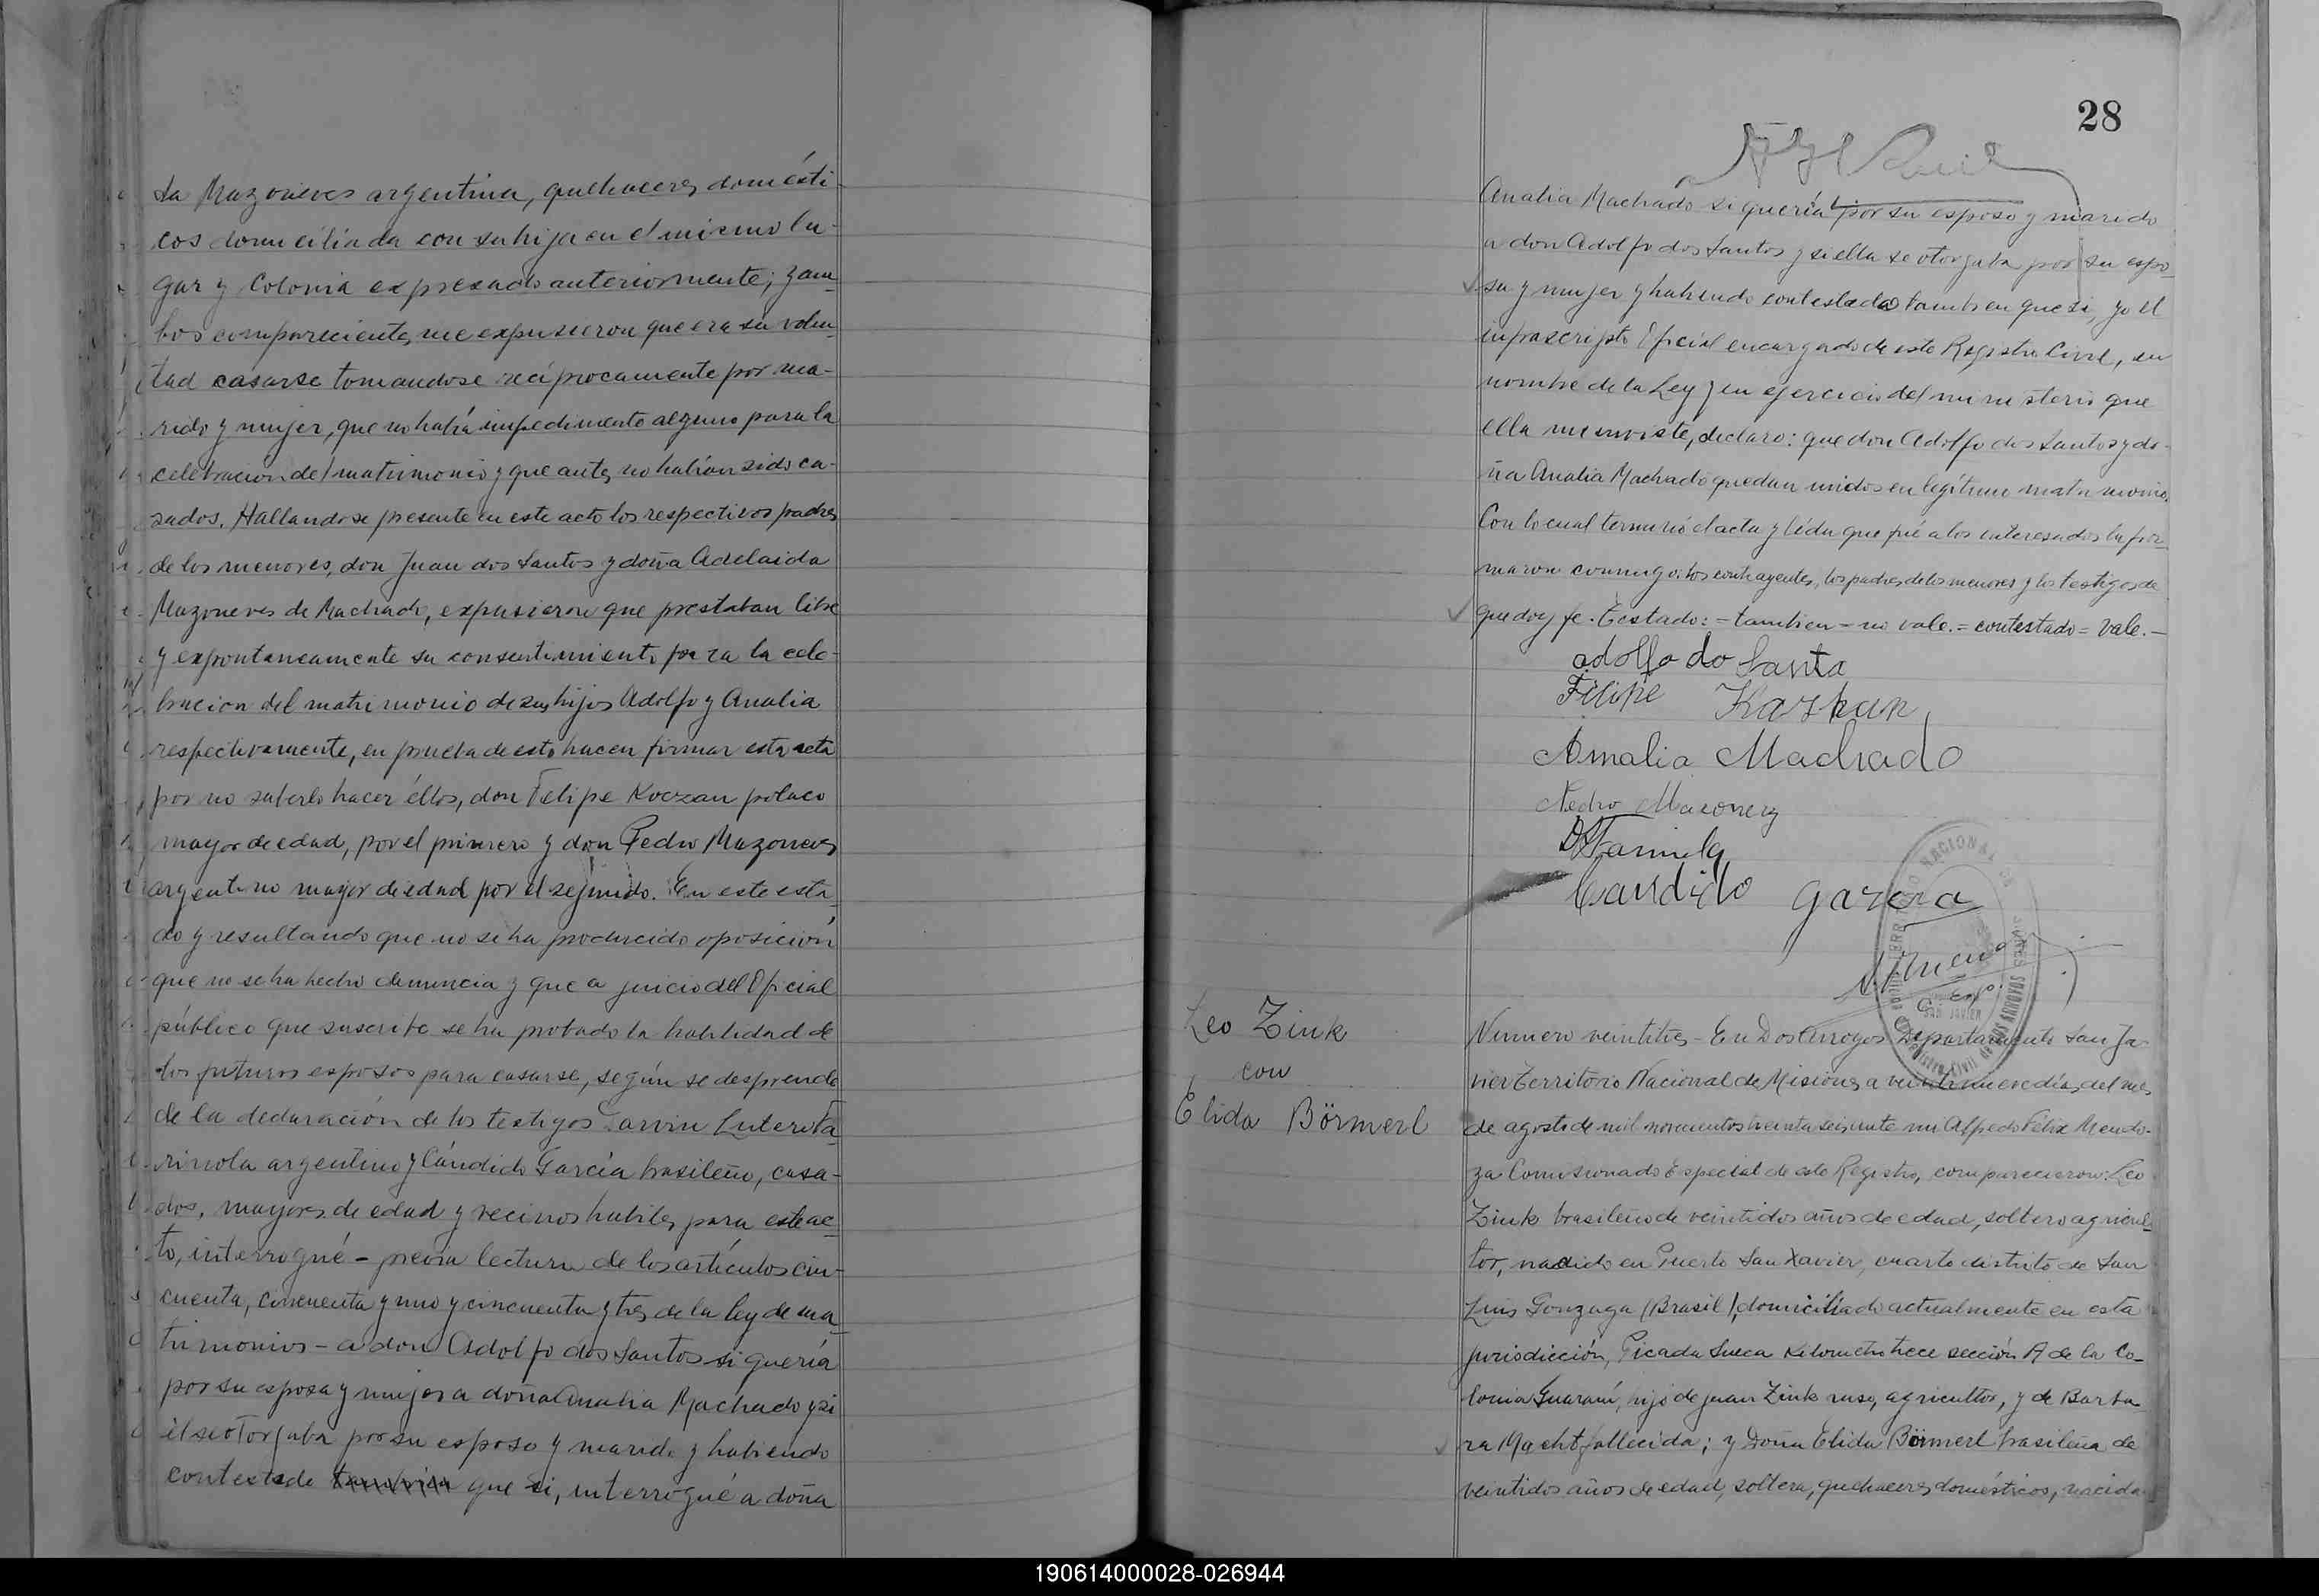 ta Mazoneves argentina, quehaceres domésti-
cos domiciliada con su hija en el mismo lu-
gar y Colonia expresado anteriormente; y am-
bos comparecientes me expusieron que era su volun-
tad casarse tomandose recíprocamente por ma-
rido y mujer, que no había impedimento alguno para la
celebracion del matrimonio y que antes no habían sido ca-
sados. Hallandose presente en este acto los respectivos padres
de los menores, don Juan dos Santos y doña Adelaida
Mazoneves de Machado, expusieron que prestaban libre
y espontaneamente su consentimiento para la cele-
bracion del matrimonio de sus hijos Adolfo y Analia
respectivamente, en prueba de esto hacen firmar esta acta
por no saberlo hacer éllos, don Felipe Koczan polaco
mayor de edad, por el primero y don Pedro Mazoneves
argentino mayor de edad por el segundo. En este esta-
do y resultando que no se ha producido oposición
que no se ha hecho denuncia y que a juicio del Oficial
público que suscribe se ha probado la habilidad de
los futuros esposos para casarse, según se desprende
de la declaración de los testigos Darvin Lutero Fa-
rinola argentino y Cándido García brasileño, casa-
dos, mayores de edad y vecinos habiles para este ac-
to, interrogué - previa lectura de los artículos cin-
cuenta, cincuenta y uno y cincuenta y tres de la ley de ma-
trimonios - a don Adolfo dos Santos si quería
por su esposa y mujer a doña Analia Machado y si
él se otorgaba por su esposo y marido y habiendo
contestado que si, interrogué a doña
28
Analia Machado si quería por su esposo y marido
a don Adolfo dos Santos y si ella se otorgaba por su espo-
sa y mujer y habiendo contestado tambien que si, yo el
infrascripto Oficial encargado de este Registro Civil, en
nombre de la Ley y en ejercicio del ministerio que
ella me inviste, declaro: que don Adolfo dos Santos y do-
ña Analia Machado quedan unidos en legítimo matrimonio.
Con lo cual terminó el acta y leída que fué a los interesados la fir-
maron conmigo: los contrayentes, los padres de los menores y los testigos de
que doy fe. Testado: = tambien = no vale. = contestado = vale. -
adolfo do Santa
Filipe
Amalia Machado
Pedro
Candido Garcia
Leo Zink
con
Elida Börmerl
Numero veintitres - En Dos Arroyos Departamento San Ja-
vier Territorio Nacional de Misiones a veintinueve días del mes
de agosto de mil novecientos treinta seis, ante mi Alfredo Félix Mendo-
za Comisionado Especial de este Registro, comparecieron: Leo
Zink brasileño de veintidos años de edad, soltero agricul-
tor, nacido en Puerto San Xavier, cuarto distrito de San
Luis Gonzaga (Brasil), domiciliado actualmente en esta
jurisdicción, Picada Sueca Kilometro trece sección A de la Co-
lonia Guaraní, hijo de Juan Zink ruso, agricultor, y de Barba-
ra Macht fallecida; y Doña Elida Börmerl brasileña de
veintidos años de edad, soltera, quehaceres domésticos, nacida
190614000028-026944